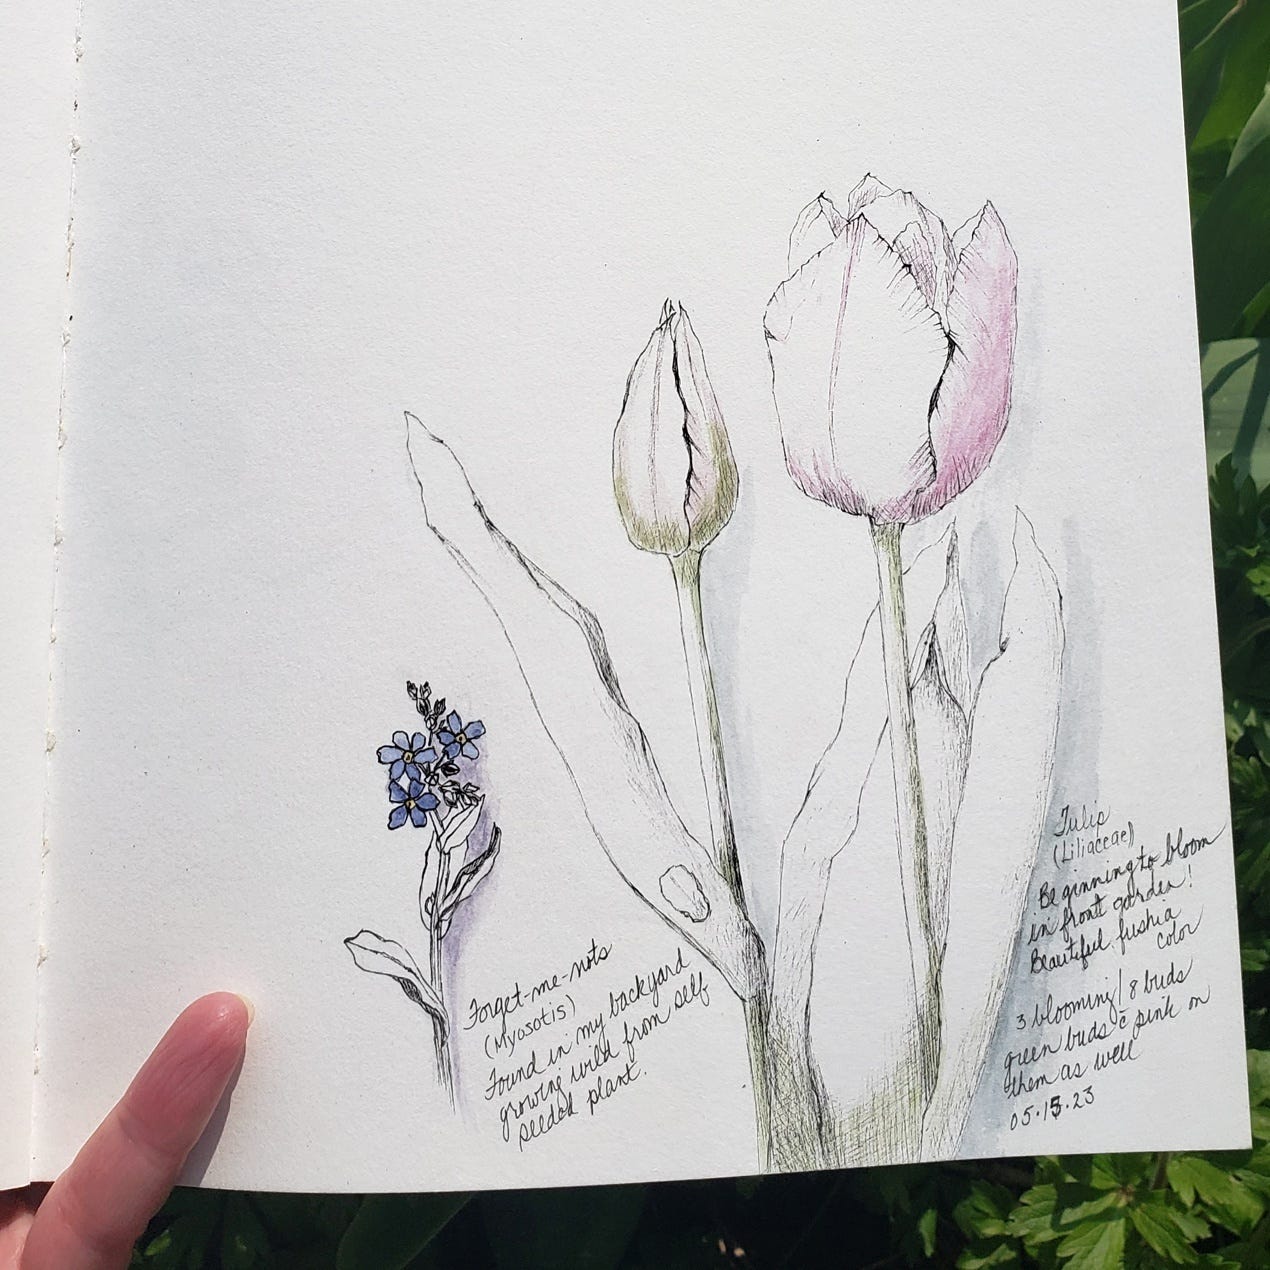 Forget-me-nots
(Myosotis)
Found in my backyard
growing wild from self
seeded plant.
Tulip
(Liliaceae)
Beginning to bloom
in front garden!
Beautiful fushia
color
3 blooming/8 buds
green buds c̄ pink on
them as well
05.15.23